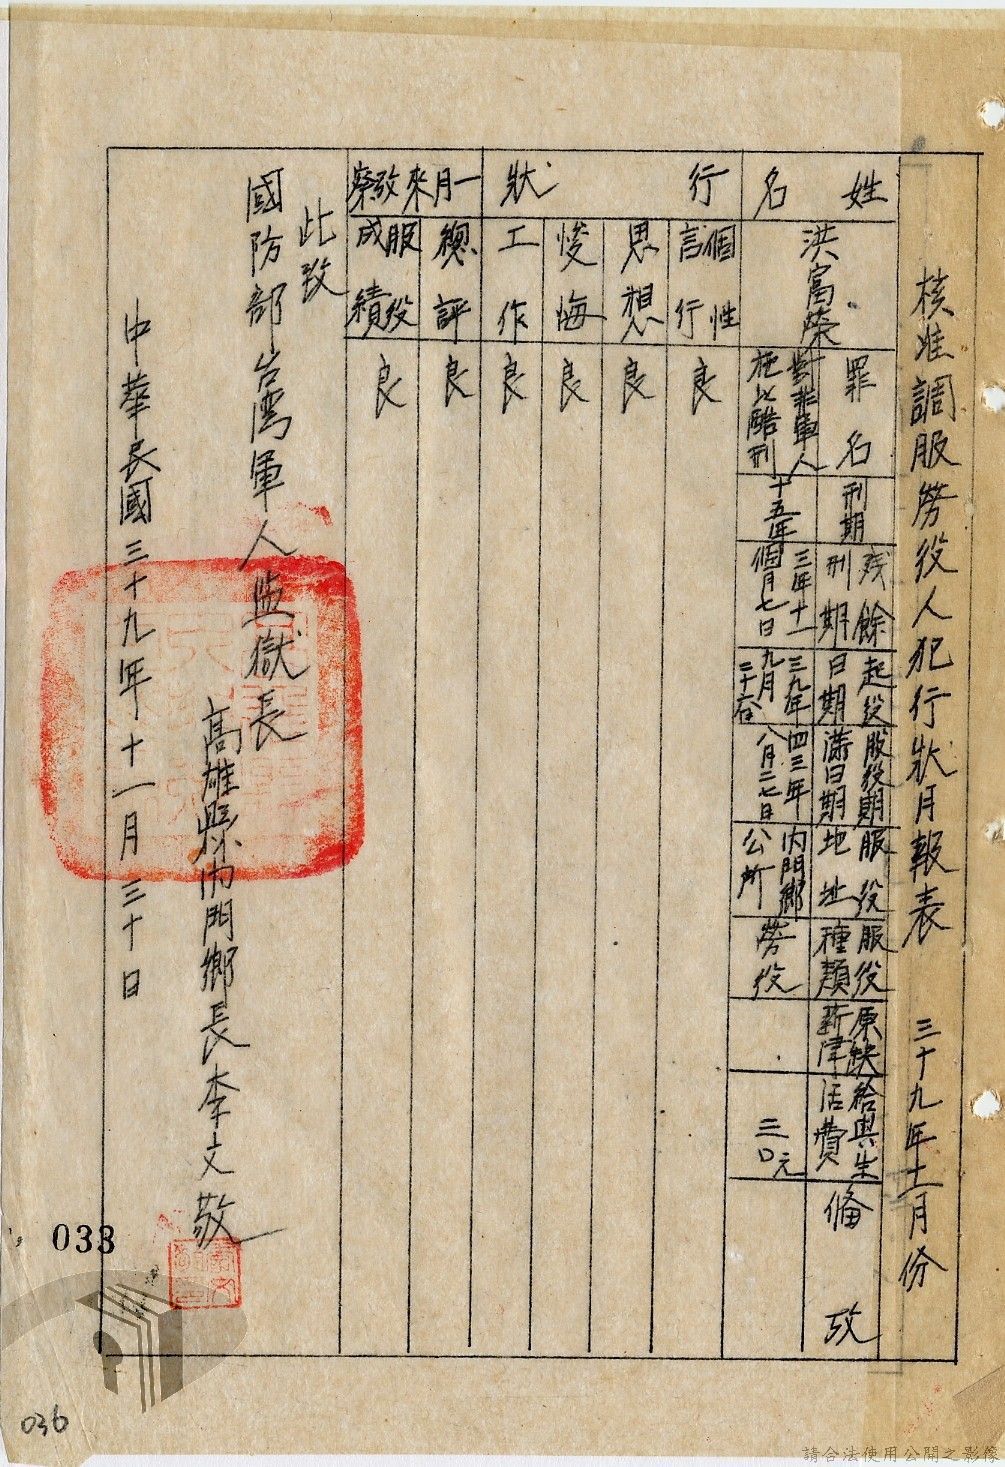 核准調服勞役人犯行狀月報表 三十九年十一月份
姓名
洪富榮
罪名
對非軍人
施以酷刑
刑期
十五年
残餘
刑期
三年十一
個月七日
起役
日期
三九年
九月
二十六日
服役期
滿日期
四三年
八月二七日
服役
地址
內門鄉
公所
服役
種類
勞役
原缺
薪津
給與生
活費
三〇元
備攷
行狀
個性
言行
良
思想
良
悛悔
良
工作
良
一月來攷察
總評
良
服役
成績
良
此致
國防部台灣軍人監獄長
高雄縣內門鄉長李文敬
中華民國三十九年十一月三十日
033
036
請合法使用公開之影像